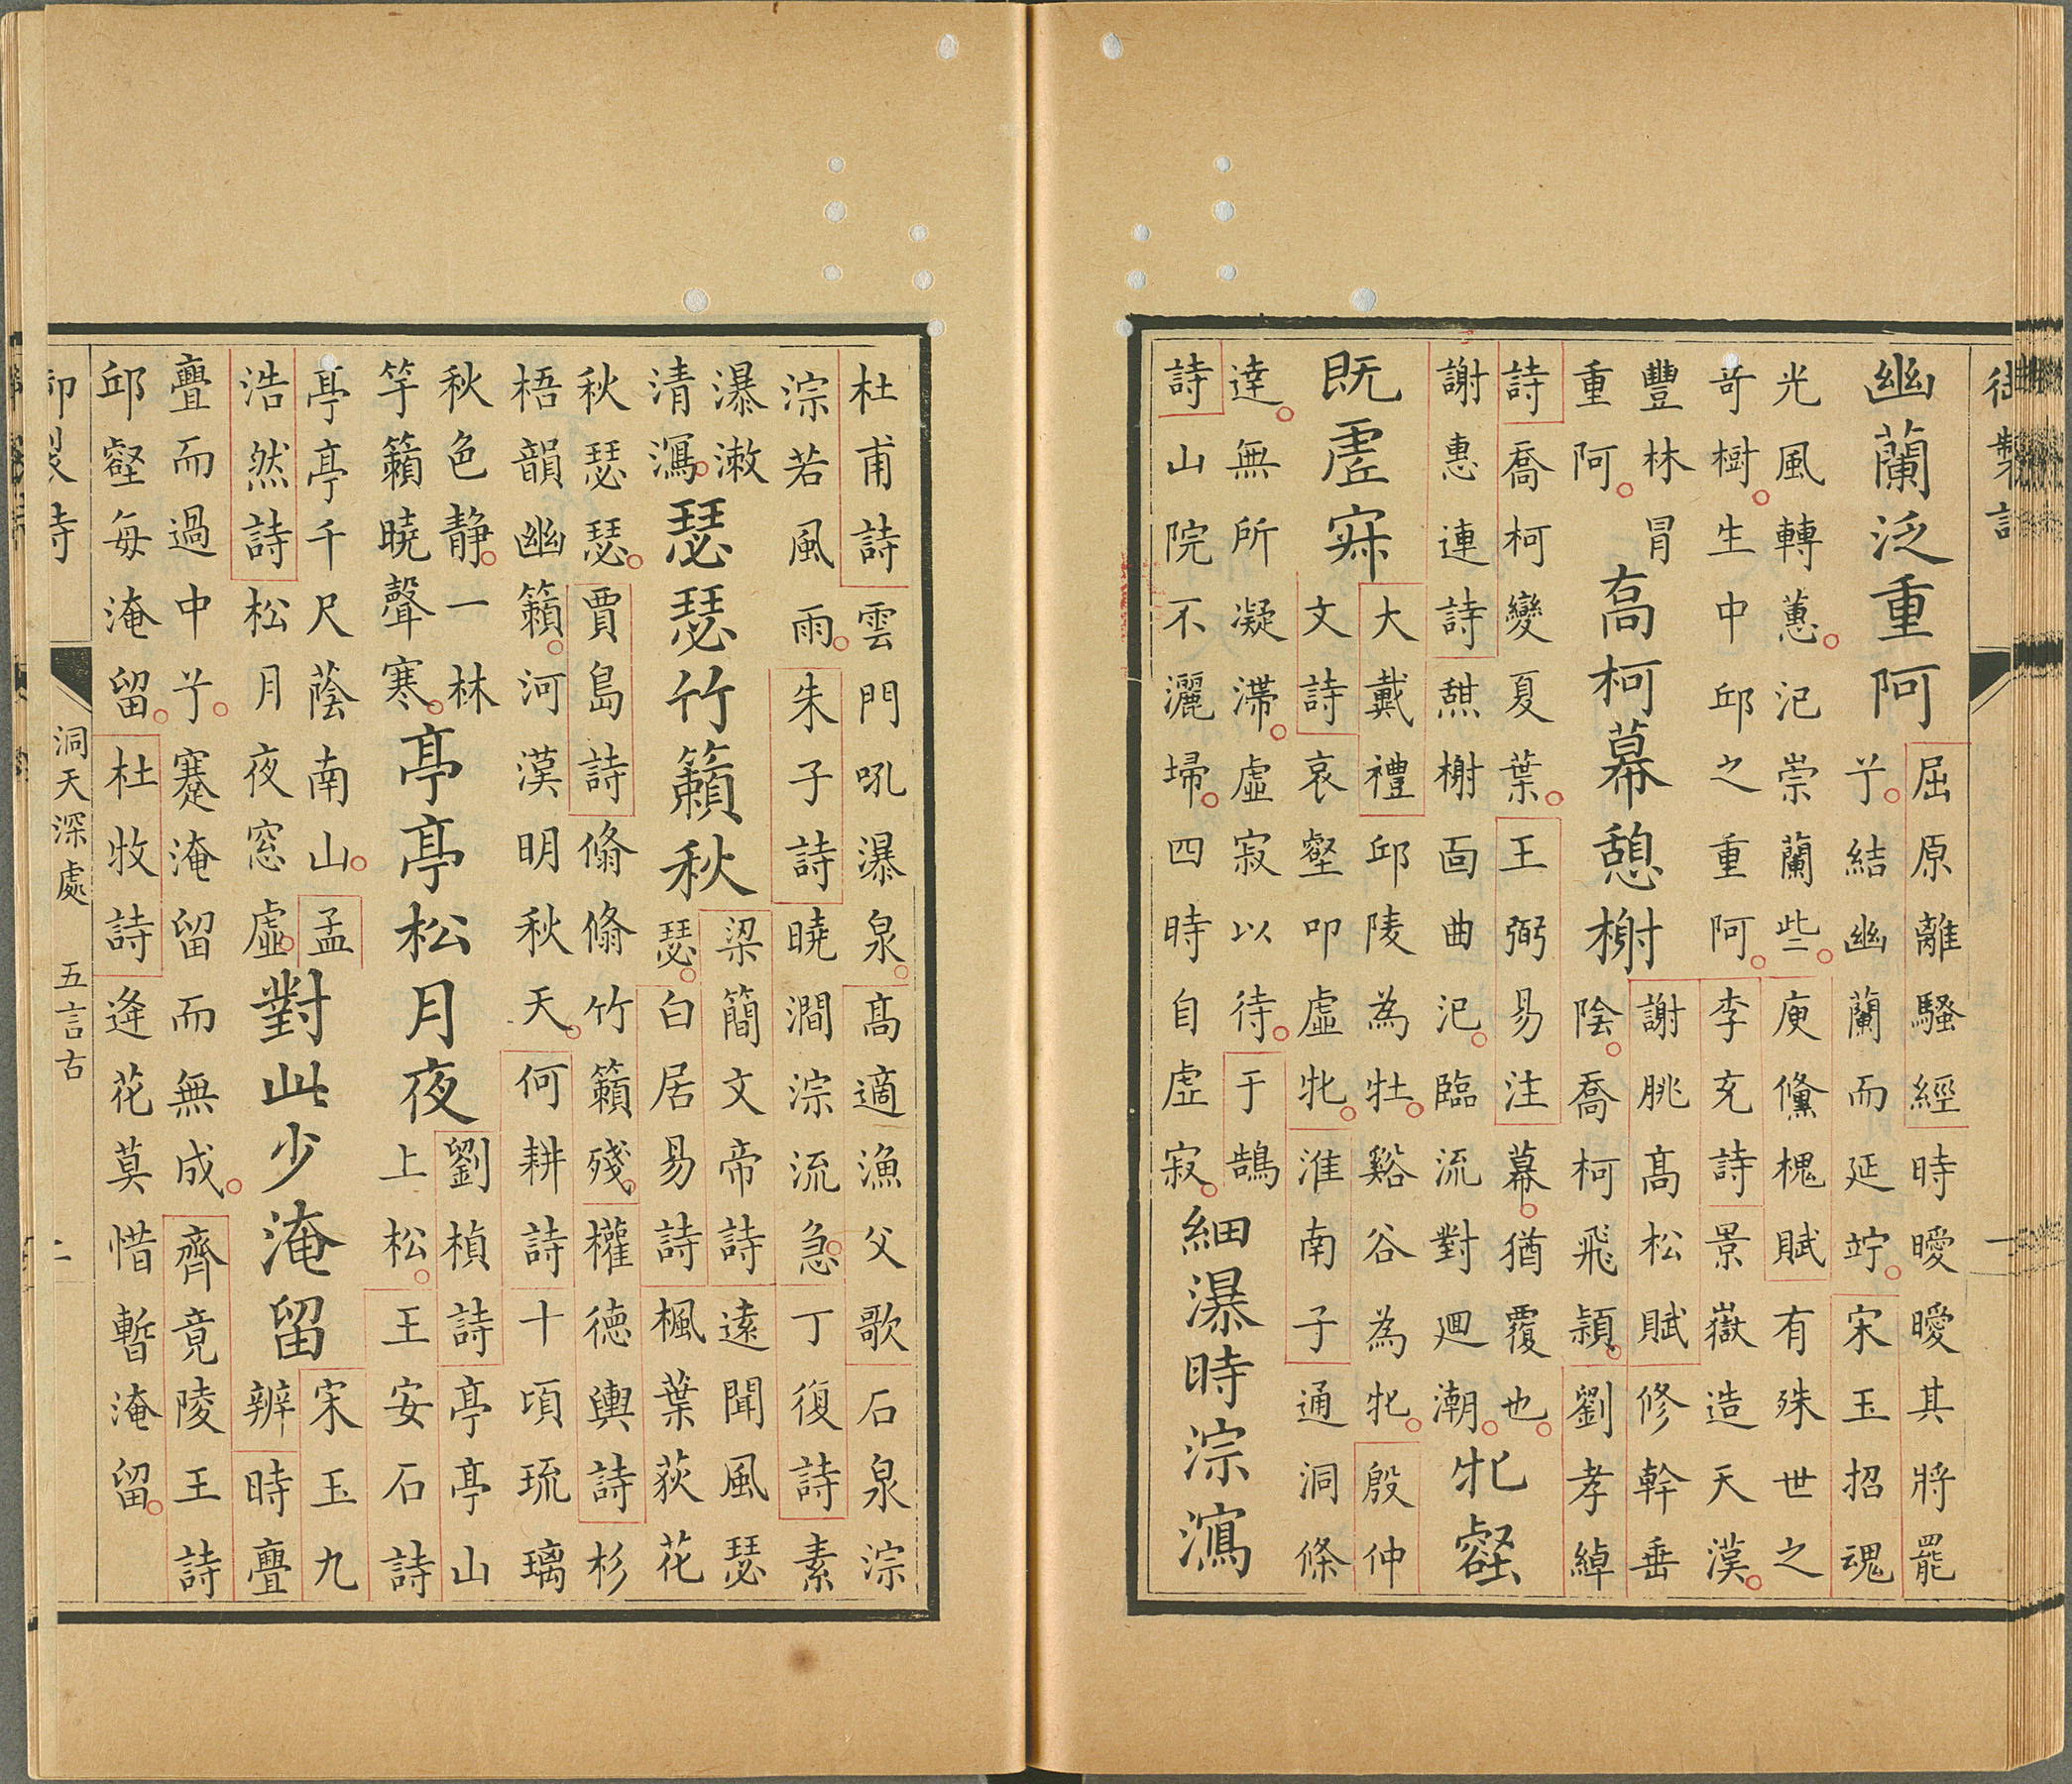 御製詩
一
幽蘭泛重阿
屈原離騷經時曖曖其將罷
兮結幽蘭而延竚宋玉招魂
光風轉蕙氾崇蘭些庾儵槐賦有殊世之
奇樹生中邱之重阿李充詩景嶽造天漢
豐林冒
重阿
高柯幕憩榭
謝朓高松賦修幹垂
陰喬柯飛潁劉孝綽
詩喬柯變夏葉王弼易注幕猶覆也
謝惠連詩憇榭面曲汜臨流對廻潮
牝壑
既虛寂
大戴禮邱陵為牡谿谷為牝殷仲
文詩哀壑叩虛牝淮南子通洞條
達無所凝滯虛寂以待于鵠
詩山院不灑埽四時自虛寂
細瀑時淙瀉
杜甫詩雲門吼瀑泉高適漁父歌石泉淙
淙若風雨朱子詩曉澗淙流急丁復詩素
瀑漱
清瀉
瑟瑟竹籟秋
梁簡文帝詩遠聞風瑟
瑟白居易詩楓葉荻花
秋瑟瑟賈島詩翛翛竹籟殘權德輿詩杉
梧韻幽籟河漢明秋天何耕詩十頃琉璃
秋色靜一林
竽籟曉聲寒
亭亭松月夜
劉楨詩亭亭山
上松王安石詩
亭亭千尺蔭南山孟
浩然詩松月夜窓虛
對此少淹留
宋玉九
辨時亹
亹而過中兮蹇淹留而無成齊竟陵王詩
邱壑每淹留杜牧詩逢花莫惜暫淹留
御製詩
洞天深處 五言古
二